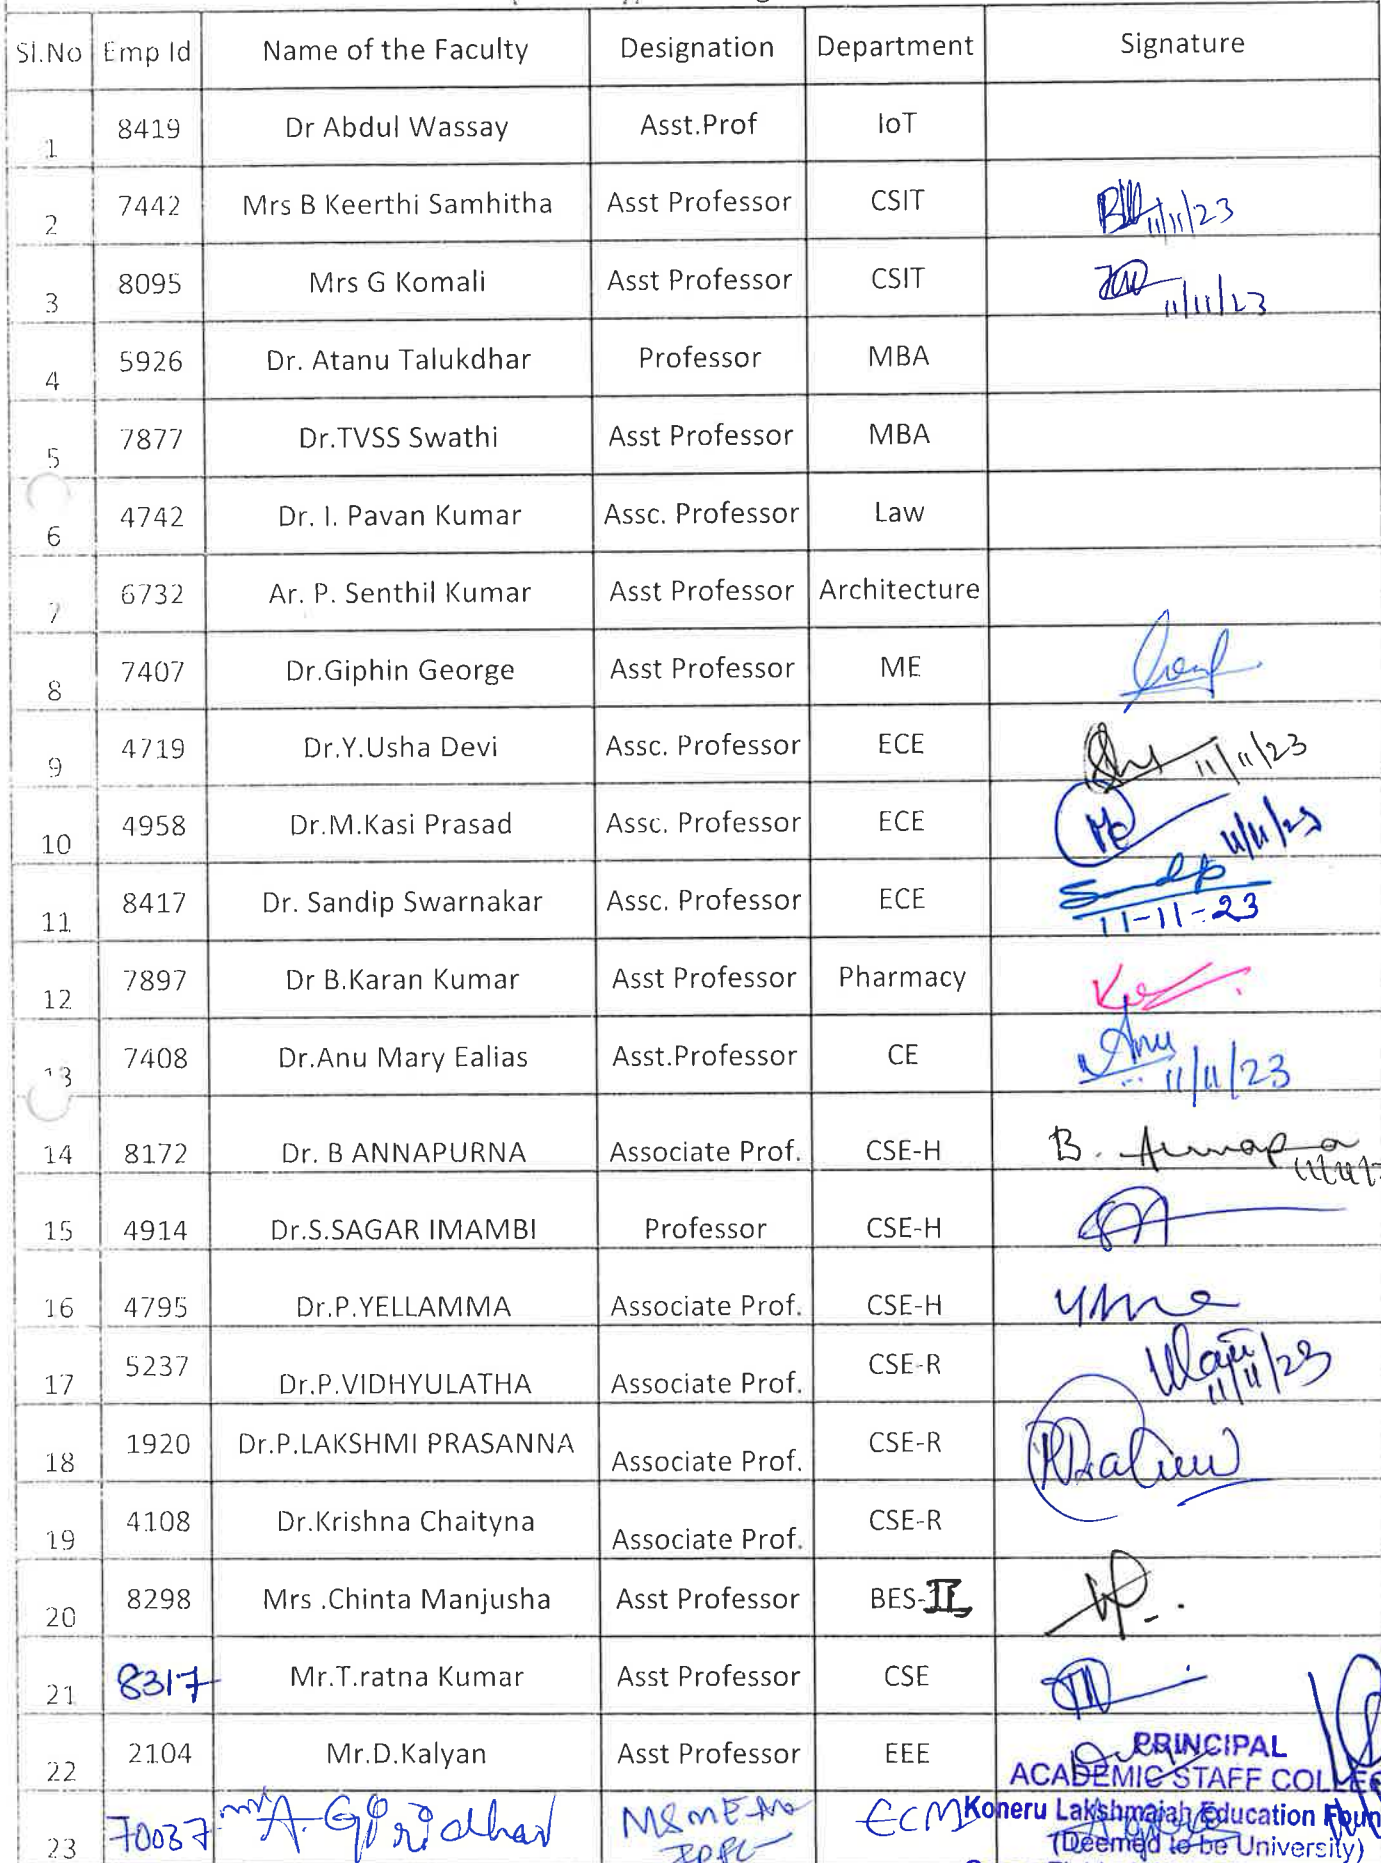 Sl.No Emp Id Name of the Faculty Designation Department Signature
1 8419 Dr Abdul Wassay Asst.Prof IoT
2 7442 Mrs B Keerthi Samhitha Asst Professor CSIT 11/11/23
3 8095 Mrs G Komali Asst Professor CSIT 11/11/23
4 5926 Dr. Atanu Talukdhar Professor MBA
5 7877 Dr.TVSS Swathi Asst Professor MBA
6 4742 Dr. I. Pavan Kumar Assc. Professor Law
7 6732 Ar. P. Senthil Kumar Asst Professor Architecture
8 7407 Dr.Giphin George Asst Professor ME
9 4719 Dr.Y.Usha Devi Assc. Professor ECE 11/11/23
10 4958 Dr.M.Kasi Prasad Assc. Professor ECE 11/11/23
11 8417 Dr. Sandip Swarnakar Assc. Professor ECE Sandip
11-11-23
12 7897 Dr B.Karan Kumar Asst Professor Pharmacy
13 7408 Dr.Anu Mary Ealias Asst.Professor CE Anu
11/11/23
14 8172 Dr. B ANNAPURNA Associate Prof. CSE-H B.
15 4914 Dr.S.SAGAR IMAMBI Professor CSE-H
16 4795 Dr.P.YELLAMMA Associate Prof. CSE-H
17 5237 Dr.P.VIDHYULATHA Associate Prof. CSE-R 11/11/23
18 1920 Dr.P.LAKSHMI PRASANNA Associate Prof. CSE-R
19 4108 Dr.Krishna Chaityna Associate Prof. CSE-R
20 8298 Mrs .Chinta Manjusha Asst Professor BES-II
21 8317 Mr.T.ratna Kumar Asst Professor CSE
22 2104 Mr.D.Kalyan Asst Professor EEE
PRINCIPAL
ACADEMIC STAFF COLLEG
23 70037 Mr A. Giridhar ECM
Koneru Lakshmaiah Education Foun
(Deemed to be University)